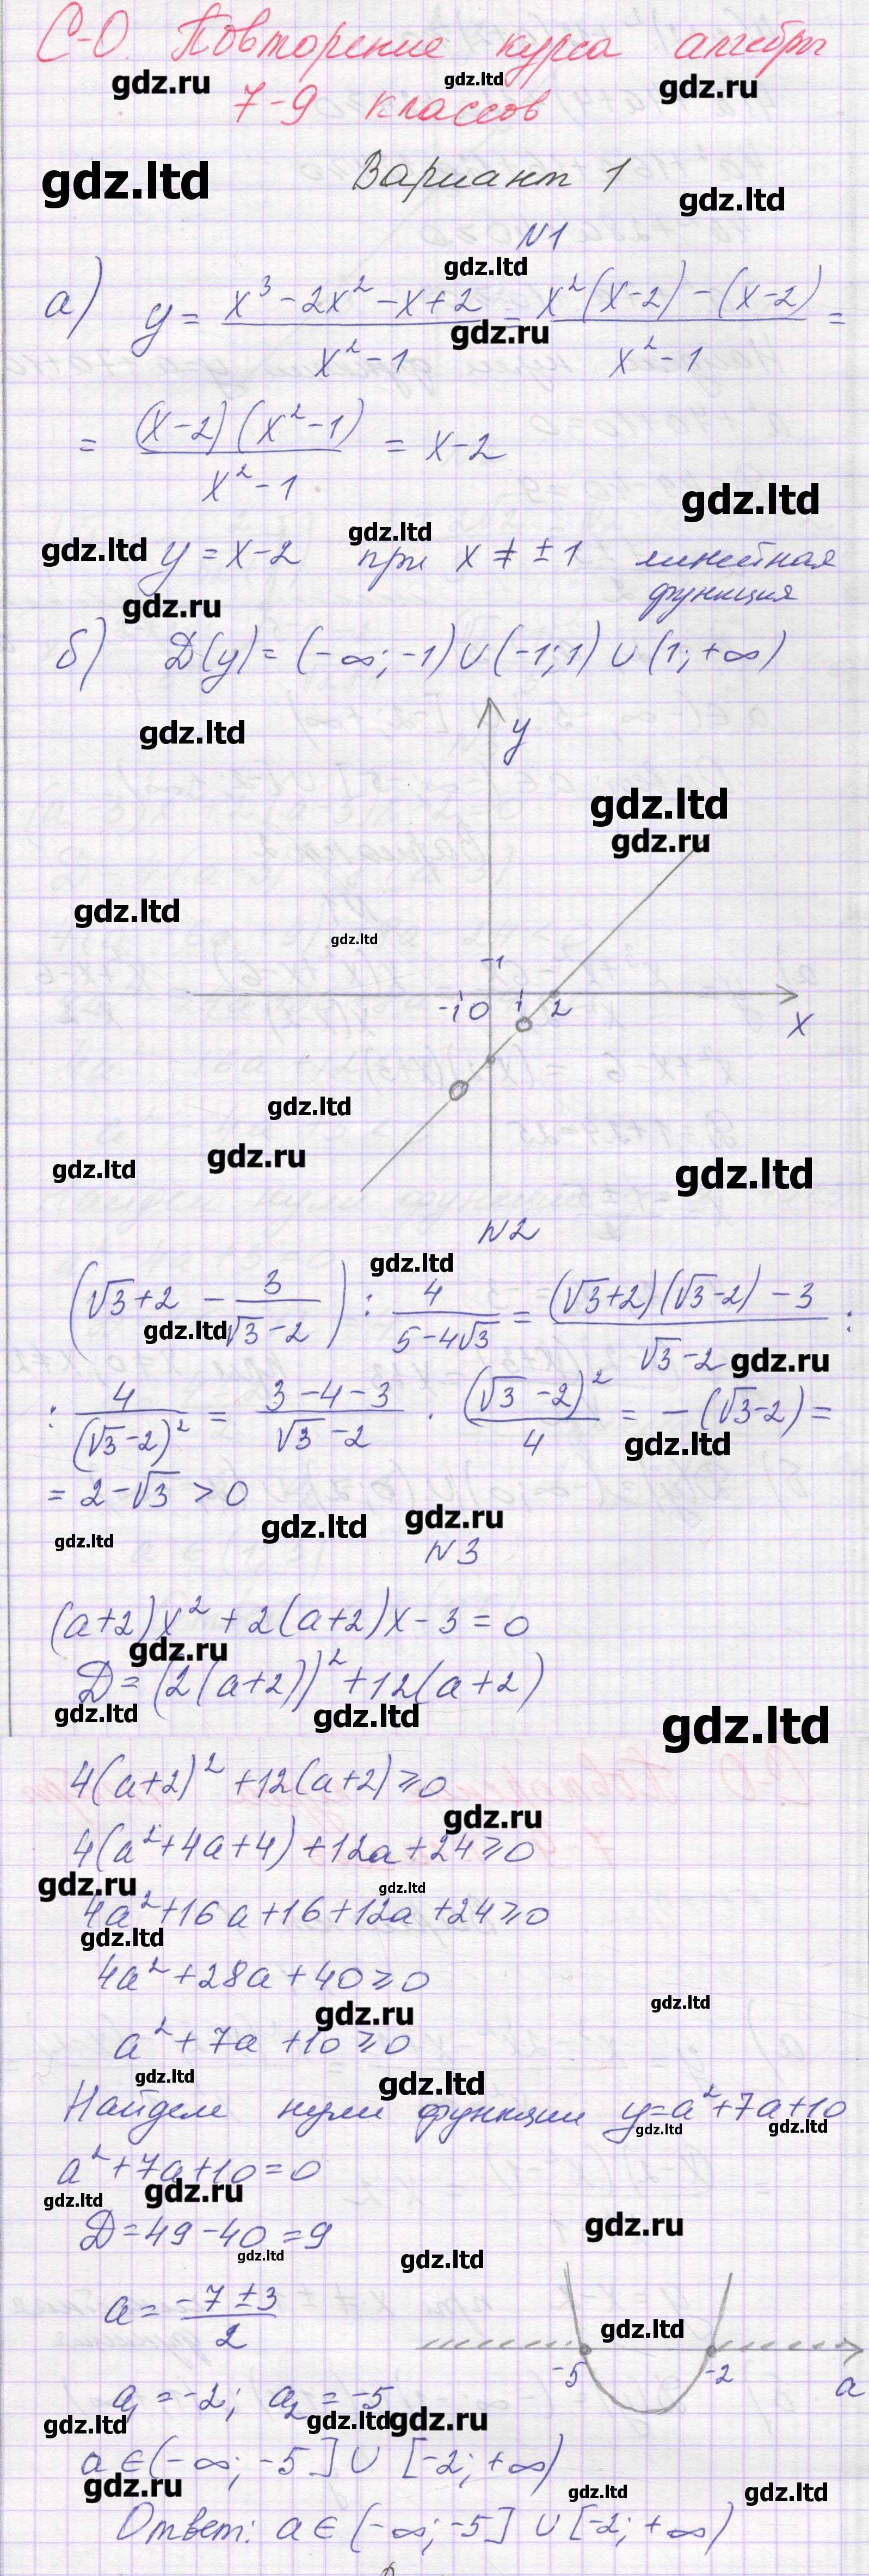 С-0. Повторение курса алгебры
gdz.ru gdz.ltd gdz.ru
7-9 классов
gdz.ltd Вариант 1
gdz.ltd
N1
gdz.ltd
а) y = (x³ - 2x² - x + 2)/(x² - 1) = (x²(x-2) - (x-2))/(x² - 1) =
gdz.ru
= ((x-2)(x²-1))/(x²-1) = x-2
gdz.ltd
gdz.ltd gdz.ltd
y = x-2 при x ≠ ±1 линейная
функция
gdz.ru
б) D(y) = (-∞; -1) ∪ (-1; 1) ∪ (1; +∞)
y
gdz.ltd
gdz.ltd
gdz.ru
gdz.ltd
gdz.ltd
1
-1 0 1 2
x
gdz.ltd
gdz.ru
gdz.ltd gdz.ltd
N2
gdz.ltd
(√3+2 - 3/(√3-2)) : 4/(5-4√3) = ((√3+2)(√3-2) - 3)/(√3-2) :
gdz.ltd gdz.ru
: 4/(√3-2)² = (3-4-3)/(√3-2) · (√3-2)²/4 = -(√3-2) =
gdz.ltd
= 2-√3 > 0
gdz.ltd gdz.ltd gdz.ru
N3
(a+2)x² + 2(a+2)x - 3 = 0
gdz.ru
D = (2(a+2))² + 12(a+2)
gdz.ltd gdz.ltd gdz.ltd
4(a+2)² + 12(a+2) ⩾ 0
gdz.ru
4(a²+4a+4) + 12a + 24 ⩾ 0
gdz.ru gdz.ltd
4a² + 16a + 16 + 12a + 24 ⩾ 0
gdz.ltd
4a² + 28a + 40 ⩾ 0
gdz.ru gdz.ltd
a² + 7a + 10 ⩾ 0
gdz.ltd gdz.ltd
Найдем нули функции y = a²+7a+10
gdz.ltd gdz.ltd
a²+7a+10 = 0
gdz.ltd gdz.ru
D = 49-40 = 9
gdz.ru
gdz.ltd gdz.ltd
a = (-7±3)/2
gdz.ltd
-5 -2 a
a₁ = -2; a₂ = -5
gdz.ltd gdz.ltd gdz.ru
a ∈ (-∞; -5] ∪ [-2; +∞)
gdz.ru gdz.ltd gdz.ltd
Ответ: a ∈ (-∞; -5] ∪ [-2; +∞)